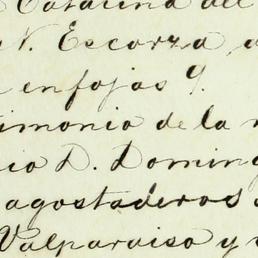 Catarina del
N. Escorza, a
en fojas 9.
timonio de la
cio D. Doming
agostaderos
Valparaiso y